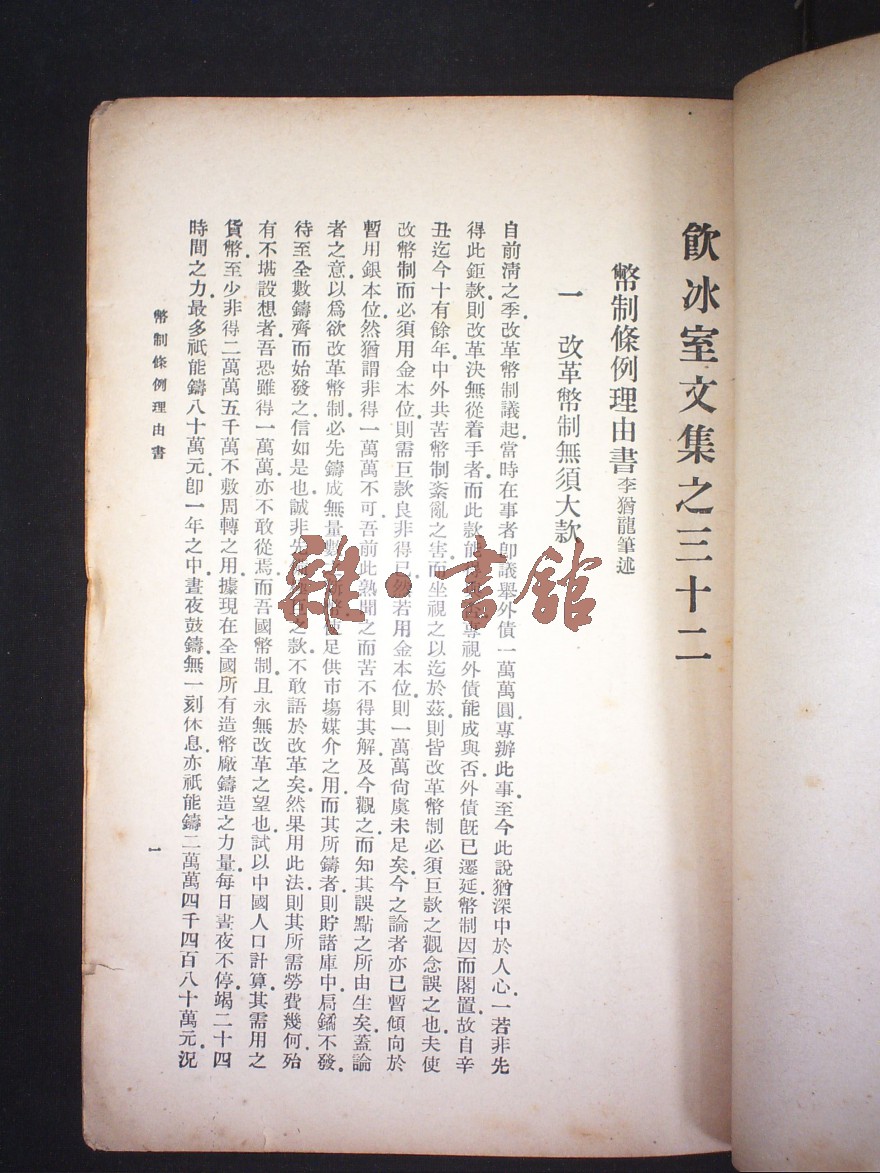 飲冰室文集之三十二
幣制條例理由書李猶龍筆述
一 改革幣制無須大款
自前淸之季.改革幣制議起.當時在事者.卽議舉外債一萬萬圓.專辦此事.至今此說猶深中於人心.一若非先
得此鉅款.則改革決無從着手者.而此款能專視外債能成與否.外債旣已遷延.幣制因而閣置.故自辛
丑迄今十有餘年.中外共苦幣制紊亂之害.而坐視之以迄於茲.則皆改革幣制必須巨款之觀念誤之也.夫使
改幣制而必須用金本位.則需巨款良非得已.然若用金本位.則一萬萬尙虞未足矣.今之論者亦已暫傾向於
暫用銀本位.然猶謂非得一萬萬不可.吾前此熟聞之而苦不得其解.及今觀之.而知其誤點之所由生矣.蓋論
者之意.以爲欲改革幣制.必先鑄成無量數足供市塲媒介之用.而其所鑄者.則貯諸庫中.扃鐍不發.
待至全數鑄齊而始發之.信如是也.誠非先之款.不敢語於改革矣.然果用此法.則其所需勞費幾何.殆
有不堪設想者.吾恐雖得一萬萬.亦不敢從焉.而吾國幣制.且永無改革之望也.試以中國人口計算.其需用之
貨幣.至少非得二萬萬五千萬不敷周轉之用.據現在全國所有造幣廠鑄造之力量.每日晝夜不停.竭二十四
時間之力.最多祇能鑄八十萬元.卽一年之中.晝夜鼓鑄.無一刻休息.亦祇能鑄二萬萬四千四百八十萬元.況
幣制條例理由書
一
雜·書館